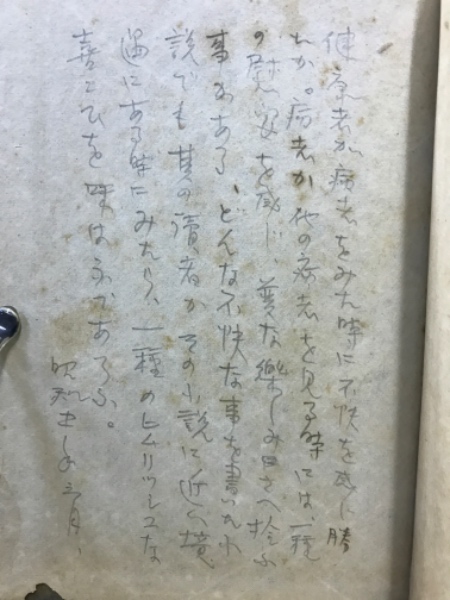 健康者が病者をみた時に不快を感じ勝
ちか。病者が他の病者を見る時には、一種
の慰安を感じ、異な楽しみさへ拾ふ
事がある、どんな不快な事を書いた小
説でも其の讀者がその小説に近い境
遇にある時にみたら、一種の
喜こびを味はふであらふ。
昭和十 年三月、